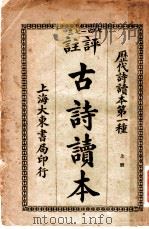 歷代詩讀本第一種
上冊
評註
古詩讀本
上海大東書局印行